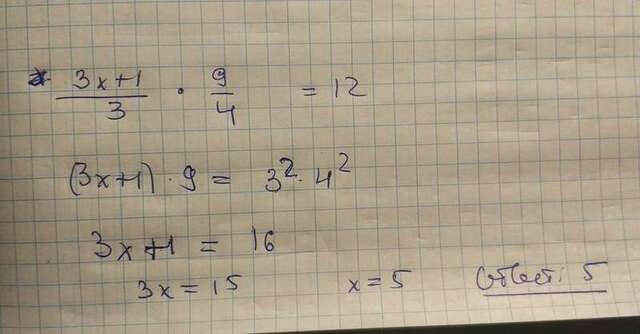 (3x+1)/3 · 9/4 = 12
(3x+1) · 9 = 3² · 4²
3x+1 = 16
3x = 15 x = 5 Ответ: 5